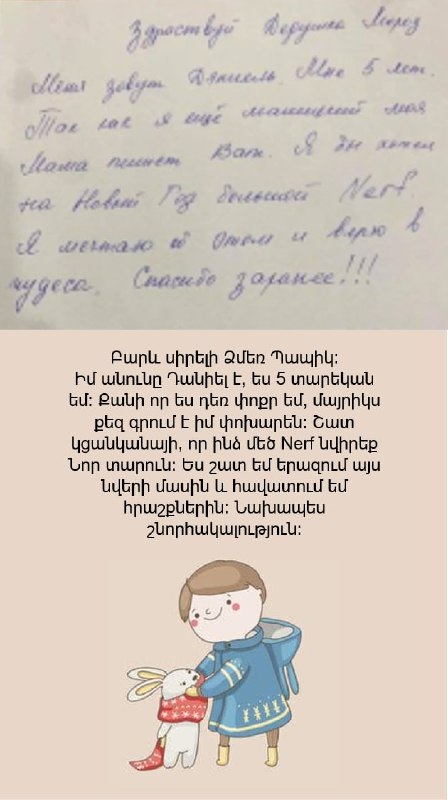 Здраствуй Дедушка Мороз
Меня зовут Даниель. Мне 5 лет.
Так как я ещё маленький моя
Мама пишет Вам. Я бы хотел
на Новый Год большой Nerf.
Я мечтаю об этом и верю в
чудеса. Спасибо заранее!!!
Բարև սիրելի Ձմեռ Պապիկ:
Իմ անունը Դանիել է, ես 5 տարեկան
եմ: Քանի որ ես դեռ փոքր եմ, մայրիկս
քեզ գրում է իմ փոխարեն: Շատ
կցանկանայի, որ ինձ մեծ Nerf նվիրեք
Նոր տարուն: Ես շատ եմ երազում այս
նվերի մասին և հավատում եմ
հրաշքներին: Նախապես
շնորհակալություն: